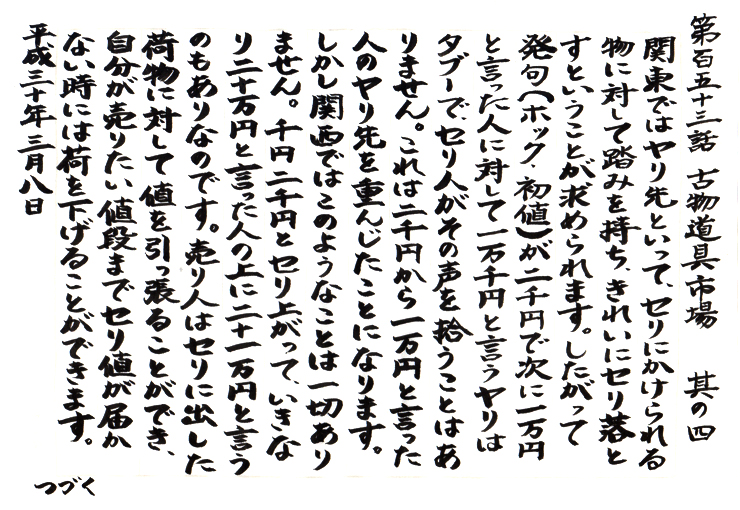 第百五十三話 古物道具市場 其の四
関東ではヤリ先といって、セリにかけられる
物に対して踏みを持ち、きれいにセリ落と
すということが求められます。したがって
発句(ホック・初値)が二千円で次に一万円
と言った人に対して一万千円と言うヤリは
タブーで、セリ人がその声を拾うことはあ
りません。これは二千円から一万円と言った
人のヤリ先を重んじたことになります。
しかし関西ではこのようなことは一切あり
ません。千円二千円とセリ上がって、いきな
り二十万円と言った人の上に二十一万円と言う
のもありなのです。売り人はセリに出した
荷物に対して値を引っ張ることができ、
自分が売りたい値段までセリ値が届か
ない時には荷を下げることができます。
平成三十年三月八日
つづく